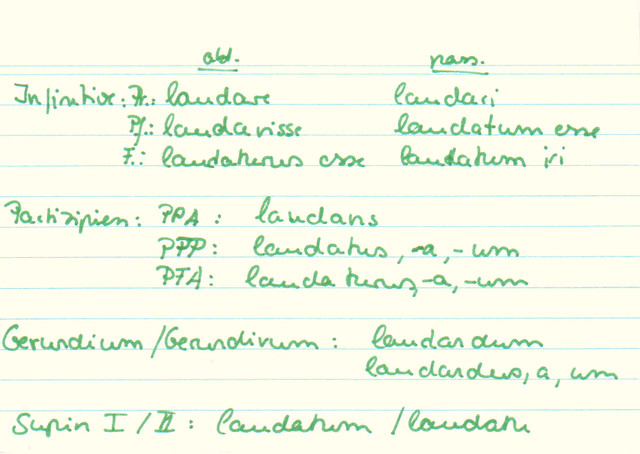 akt. pass.
Infinitive: Pr.: laudare laudari
Pf.: laudavisse laudatum esse
F.: laudaturus esse laudatum iri
Partizipien: PPA: laudans
PPP: laudatus, -a, -um
PFA: laudaturus, -a, -um
Gerundium/Gerundivum: laudandum
laudandus, a, um
Supin I/II: laudatum/laudatu